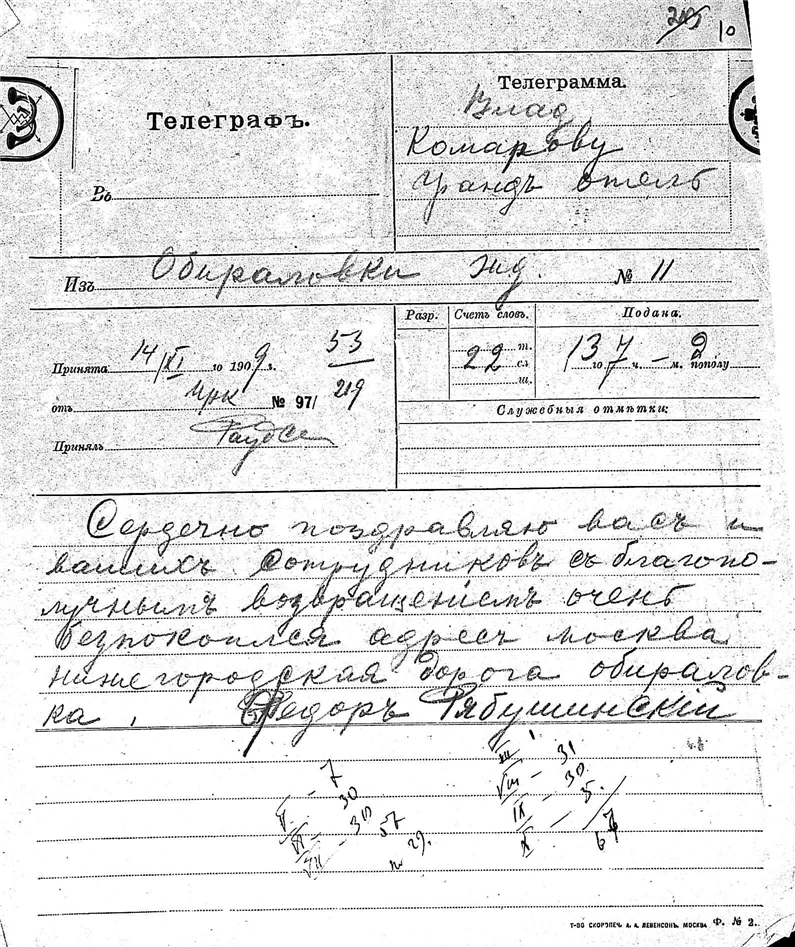 10
Телеграфъ.
Въ
Телеграмма.
Влад
Комарову
Грандъ отель
Изъ Обираловки жд. № 11
Принята 14/XI 1909 г.
53
219
отъ № 97/
Принялъ
Разр.
Счетъ словъ.
22
т.
сл
ш.
Подана.
13 го 7 ч. — м. пополу
Служебныя отмѣтки:
Сердечно поздравляю васъ и
вашихъ сотрудниковъ съ благопо-
лучнымъ возвращеніемъ очень
безпокоился адресъ москва
нижегородская дорога обиралов-
ка . Федоръ Рябушинскій
V — 7
VI — 30
VII — 30
57
29.
VIII — 31
IX — 30
X — 5.
67
Т-ВО СКОРОПЕЧ. А. А. ЛЕВЕНСОНЪ. МОСКВА Ф. № 2.